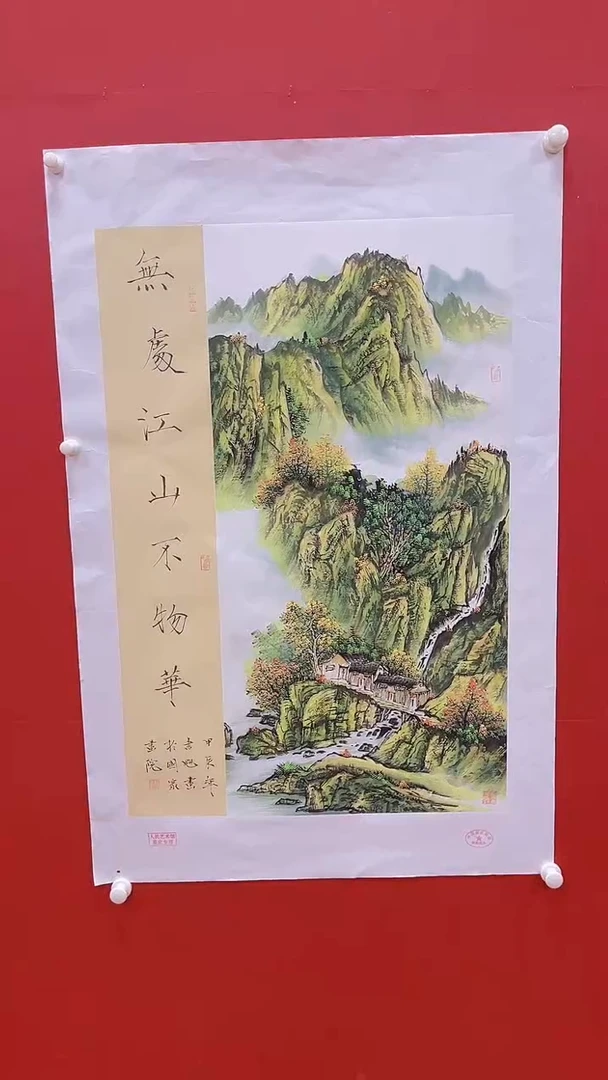 無處江山不物華
甲辰年
吉旭書
於國家
畫院